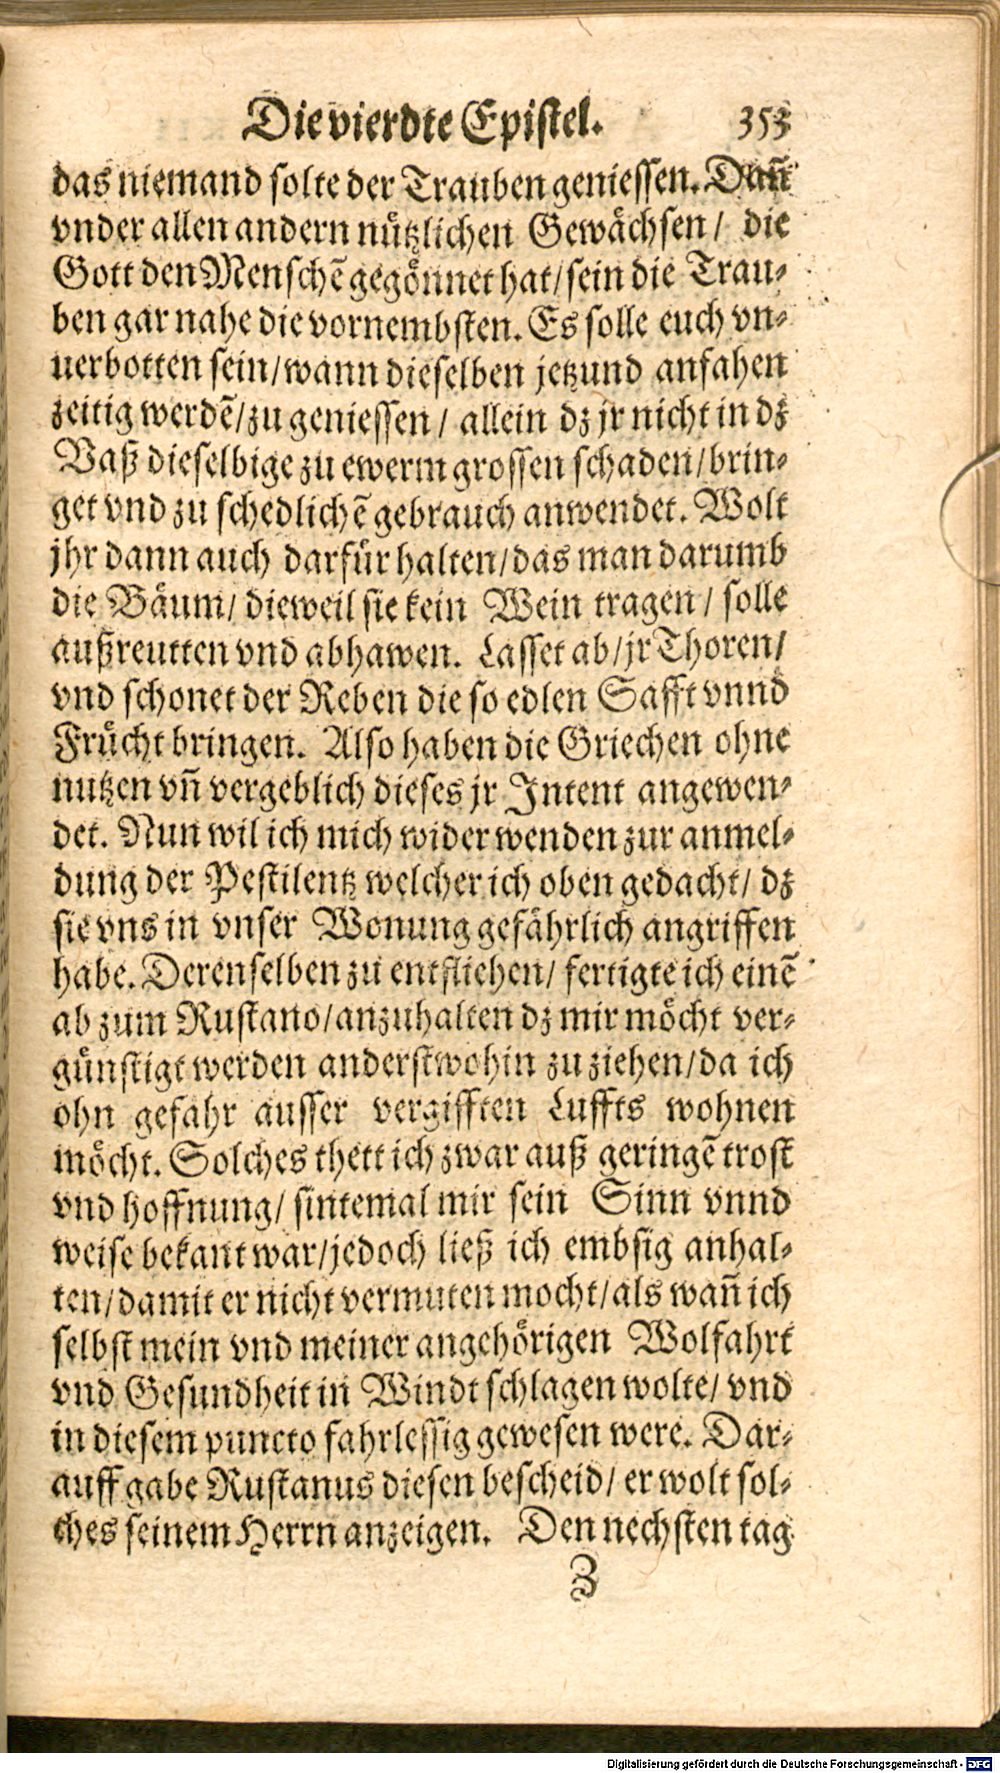 Die vierdte Epistel. 353
das niemand solte der Trauben geniessen. Dañ
vnder allen andern nützlichen Gewächsen / die
Gott den Menschẽ gegönnet hat / sein die Trau-
ben gar nahe die vornembsten. Es solle euch vn-
uerbotten sein / wann dieselben jetzund anfahen
zeitig werdẽ / zu geniessen / allein dz jr nicht in dz
Vaß dieselbige zu ewerm grossen schaden / brin-
get vnd zu schedlichẽ gebrauch anwendet. Wolt
jhr dann auch darfür halten / das man darumb
die Bäum / dieweil sie kein Wein tragen / solle
außreutten vnd abhawen. Lasset ab / jr Thoren /
vnd schonet der Reben die so edlen Safft vnnd
Frücht bringen. Also haben die Griechen ohne
nutzen vñ vergeblich dieses jr Intent angewen-
det. Nun wil ich mich wider wenden zur anmel-
dung der Pestilentz welcher ich oben gedacht / dz
sie vns in vnser Wonung gefährlich angriffen
habe. Derenselben zu entfliehen / fertigte ich einẽ
ab zum Rustano / anzuhalten dz mir möcht ver-
günstigt werden anderstwohin zu ziehen / da ich
ohn gefahr ausser vergifften Luffts wohnen
möcht. Solches thett ich zwar auß geringẽ trost
vnd hoffnung / sintemal mir sein Sinn vnnd
weise bekant war / jedoch ließ ich embsig anhal-
ten / damit er nicht vermuten mocht / als wañ ich
selbst mein vnd meiner angehörigen Wolfahrt
vnd Gesundheit in Windt schlagen wolte / vnd
in diesem puncto fahrlessig gewesen were. Dar-
auff gabe Rustanus diesen bescheid / er wolt sol-
ches seinem Herrn anzeigen. Den nechsten tag
Z
Digitalisierung gefördert durch die Deutsche Forschungsgemeinschaft - DFG